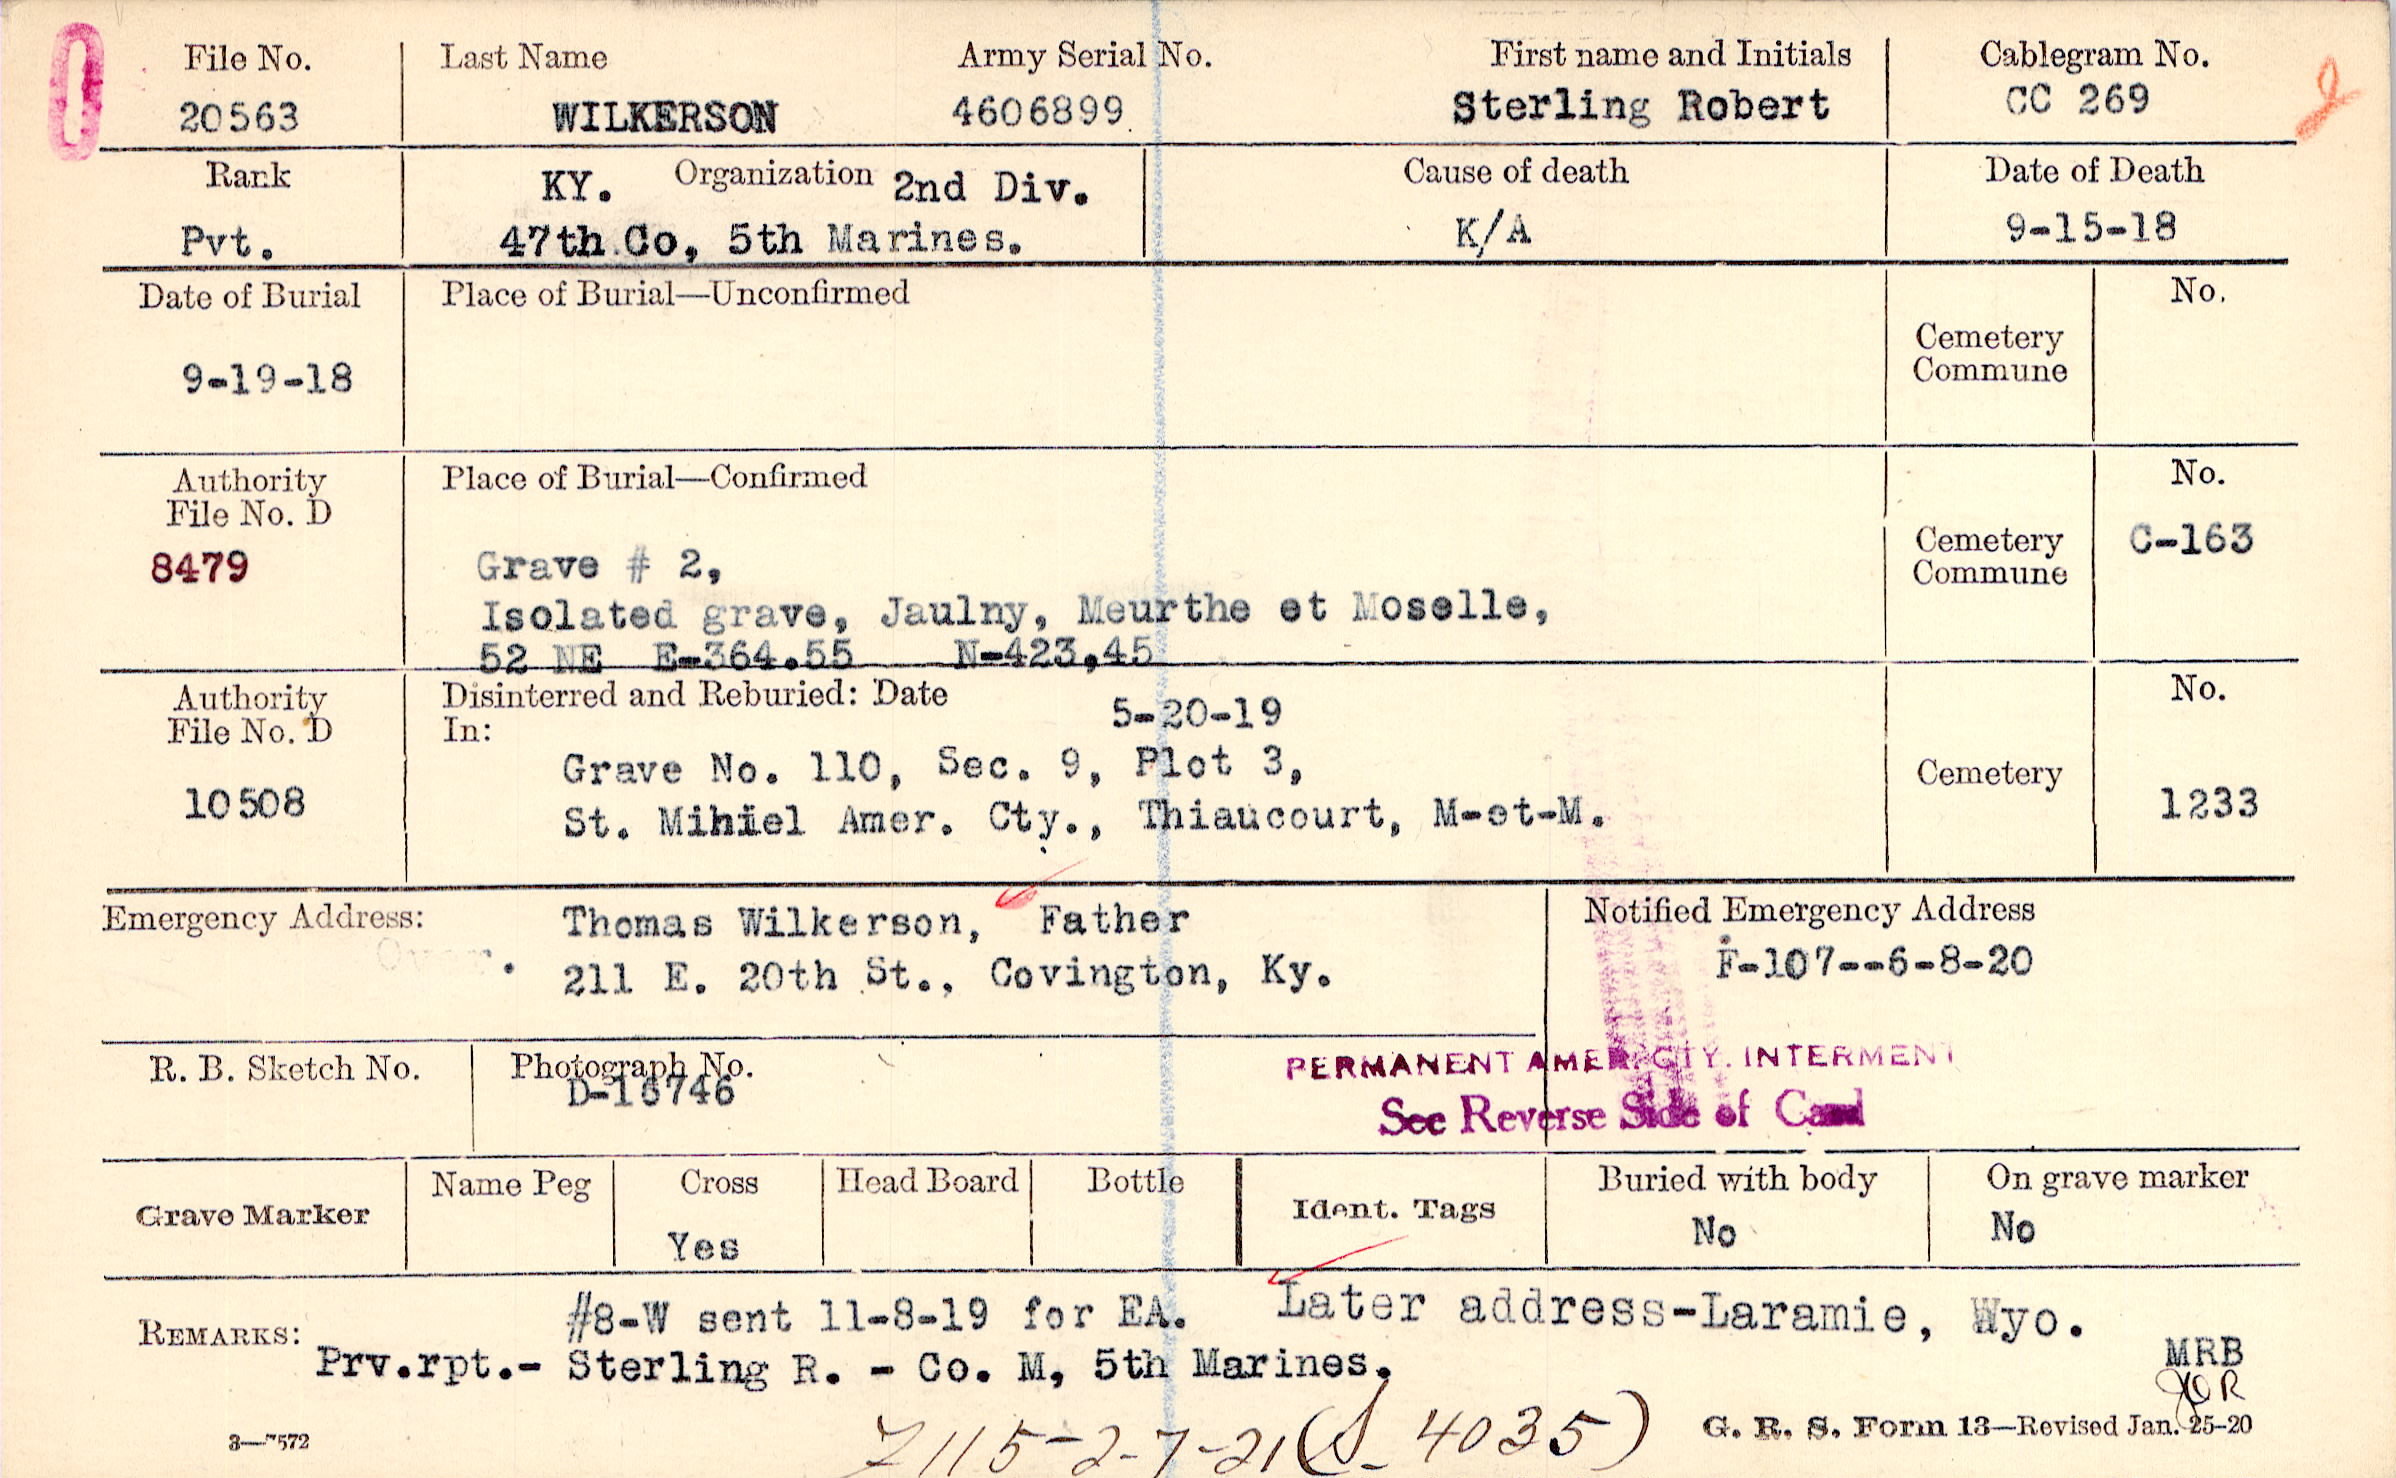 File No. Last Name Army Serial No. First name and Initials Cablegram No.
20563 WILKERSON 4606899 Sterling Robert CC 269
Rank KY. Organization 2nd Div. Cause of death Date of Death
Pvt. 47th Co, 5th Marines. K/A 9-15-18
Date of Burial Place of Burial—Unconfirmed No.
Cemetery
Commune
9-19-18
Authority Place of Burial—Confirmed No.
File No. D
8479 Cemetery C-163
Commune
Grave # 2,
Isolated grave, Jaulny, Meurthe et Moselle,
52 NE E-364.55 N-423,45
Authority Disinterred and Reburied: Date 5-20-19 No.
File No. D In:
Grave No. 110, Sec. 9, Plot 3,
Cemetery
10508 St. Mihiel Amer. Cty., Thiaucourt, M-et-M. 1233
Emergency Address: Thomas Wilkerson, Father Notified Emergency Address
211 E. 20th St., Covington, Ky. F-107--6-8-20
R. B. Sketch No. Photograph No.
D-16746
PERMANENT AMER. CTY. INTERMENT
See Reverse Side of Card
Grave Marker Name Peg Cross Head Board Bottle Ident. Tags Buried with body On grave marker
Yes No No
REMARKS: #8-W sent 11-8-19 for EA. Later address-Laramie, Wyo.
Prv.rpt.- Sterling R. - Co. M, 5th Marines. MRB
3—7572 G. R. S. Form 13—Revised Jan. 25-20
115-2-7-21 4035)